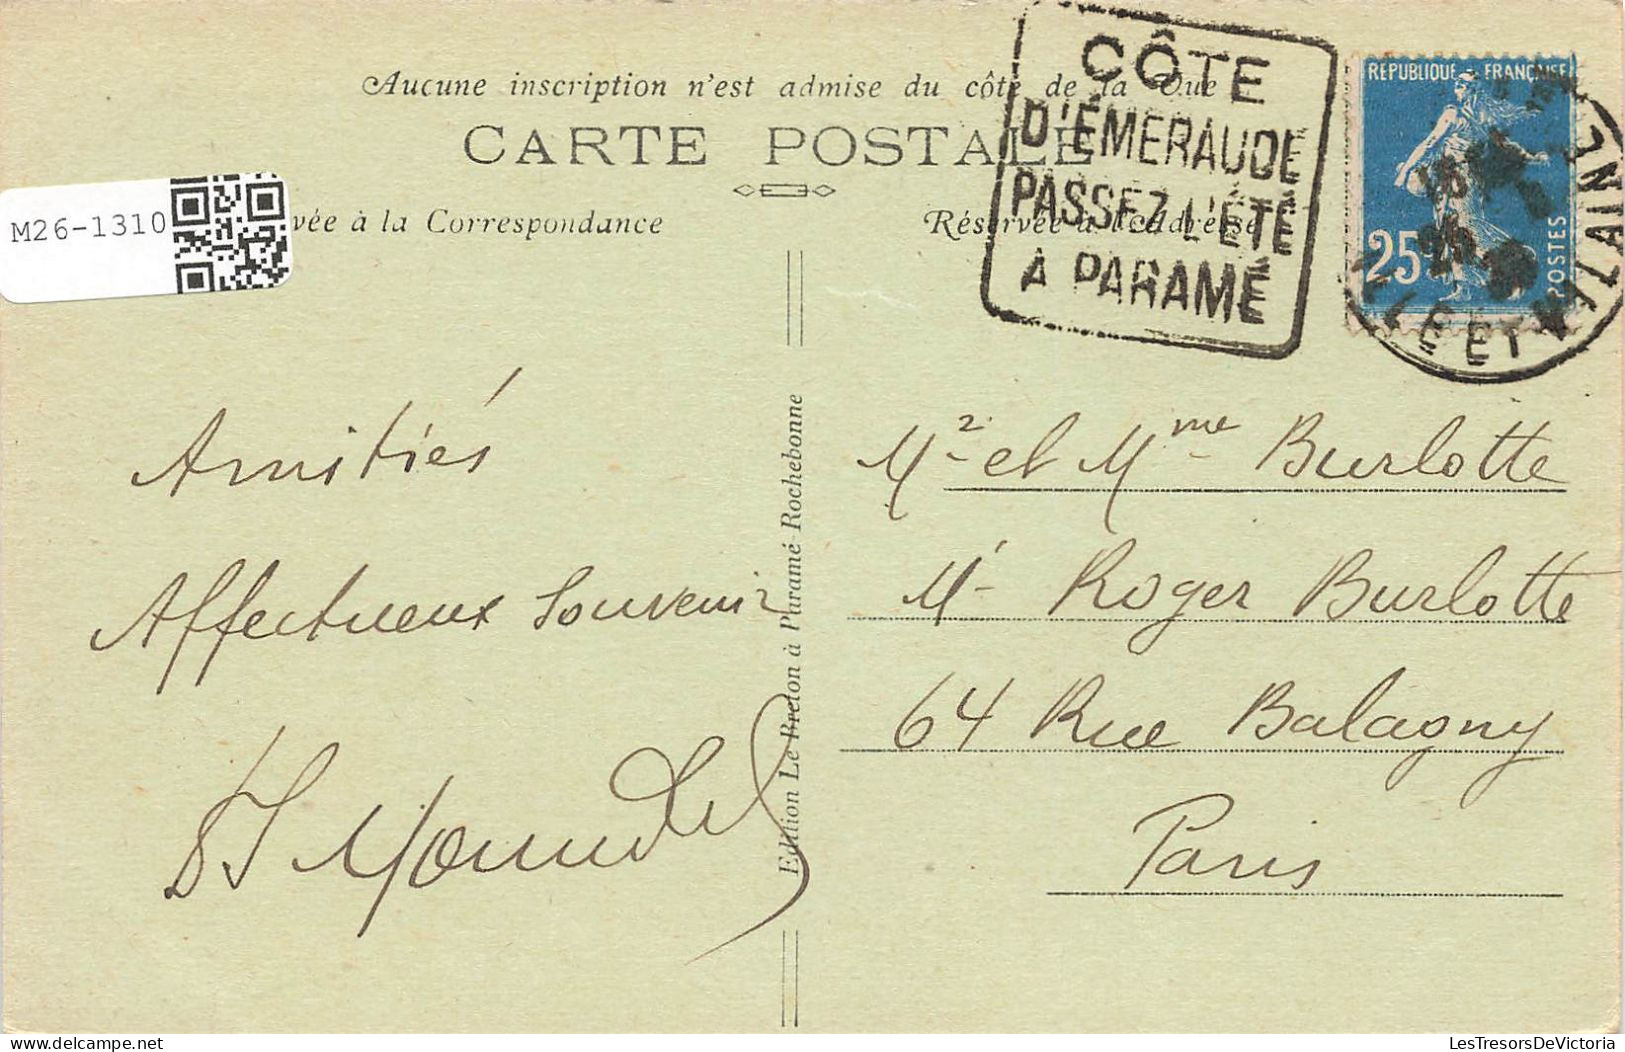 Aucune inscription n'est admise du côté de la Vue
CARTE POSTALE
M26-1310
vée à la Correspondance
Réservée à l'Adresse
CÔTE
D'ÉMERAUDE
PASSEZ L'ÉTÉ
À PARAMÉ
RÉPUBLIQUE FRANÇAISE
25
POSTES
ILLE ET VILAINE
Amitiés
Affectueux Souvenir
Edition Le Breton à Paramé-Rochebonne
Mr et Mme Burlotte
Mr Roger Burlotte
64 Rue Balagny
Paris
delcampe.net
LesTresorsDeVictoria